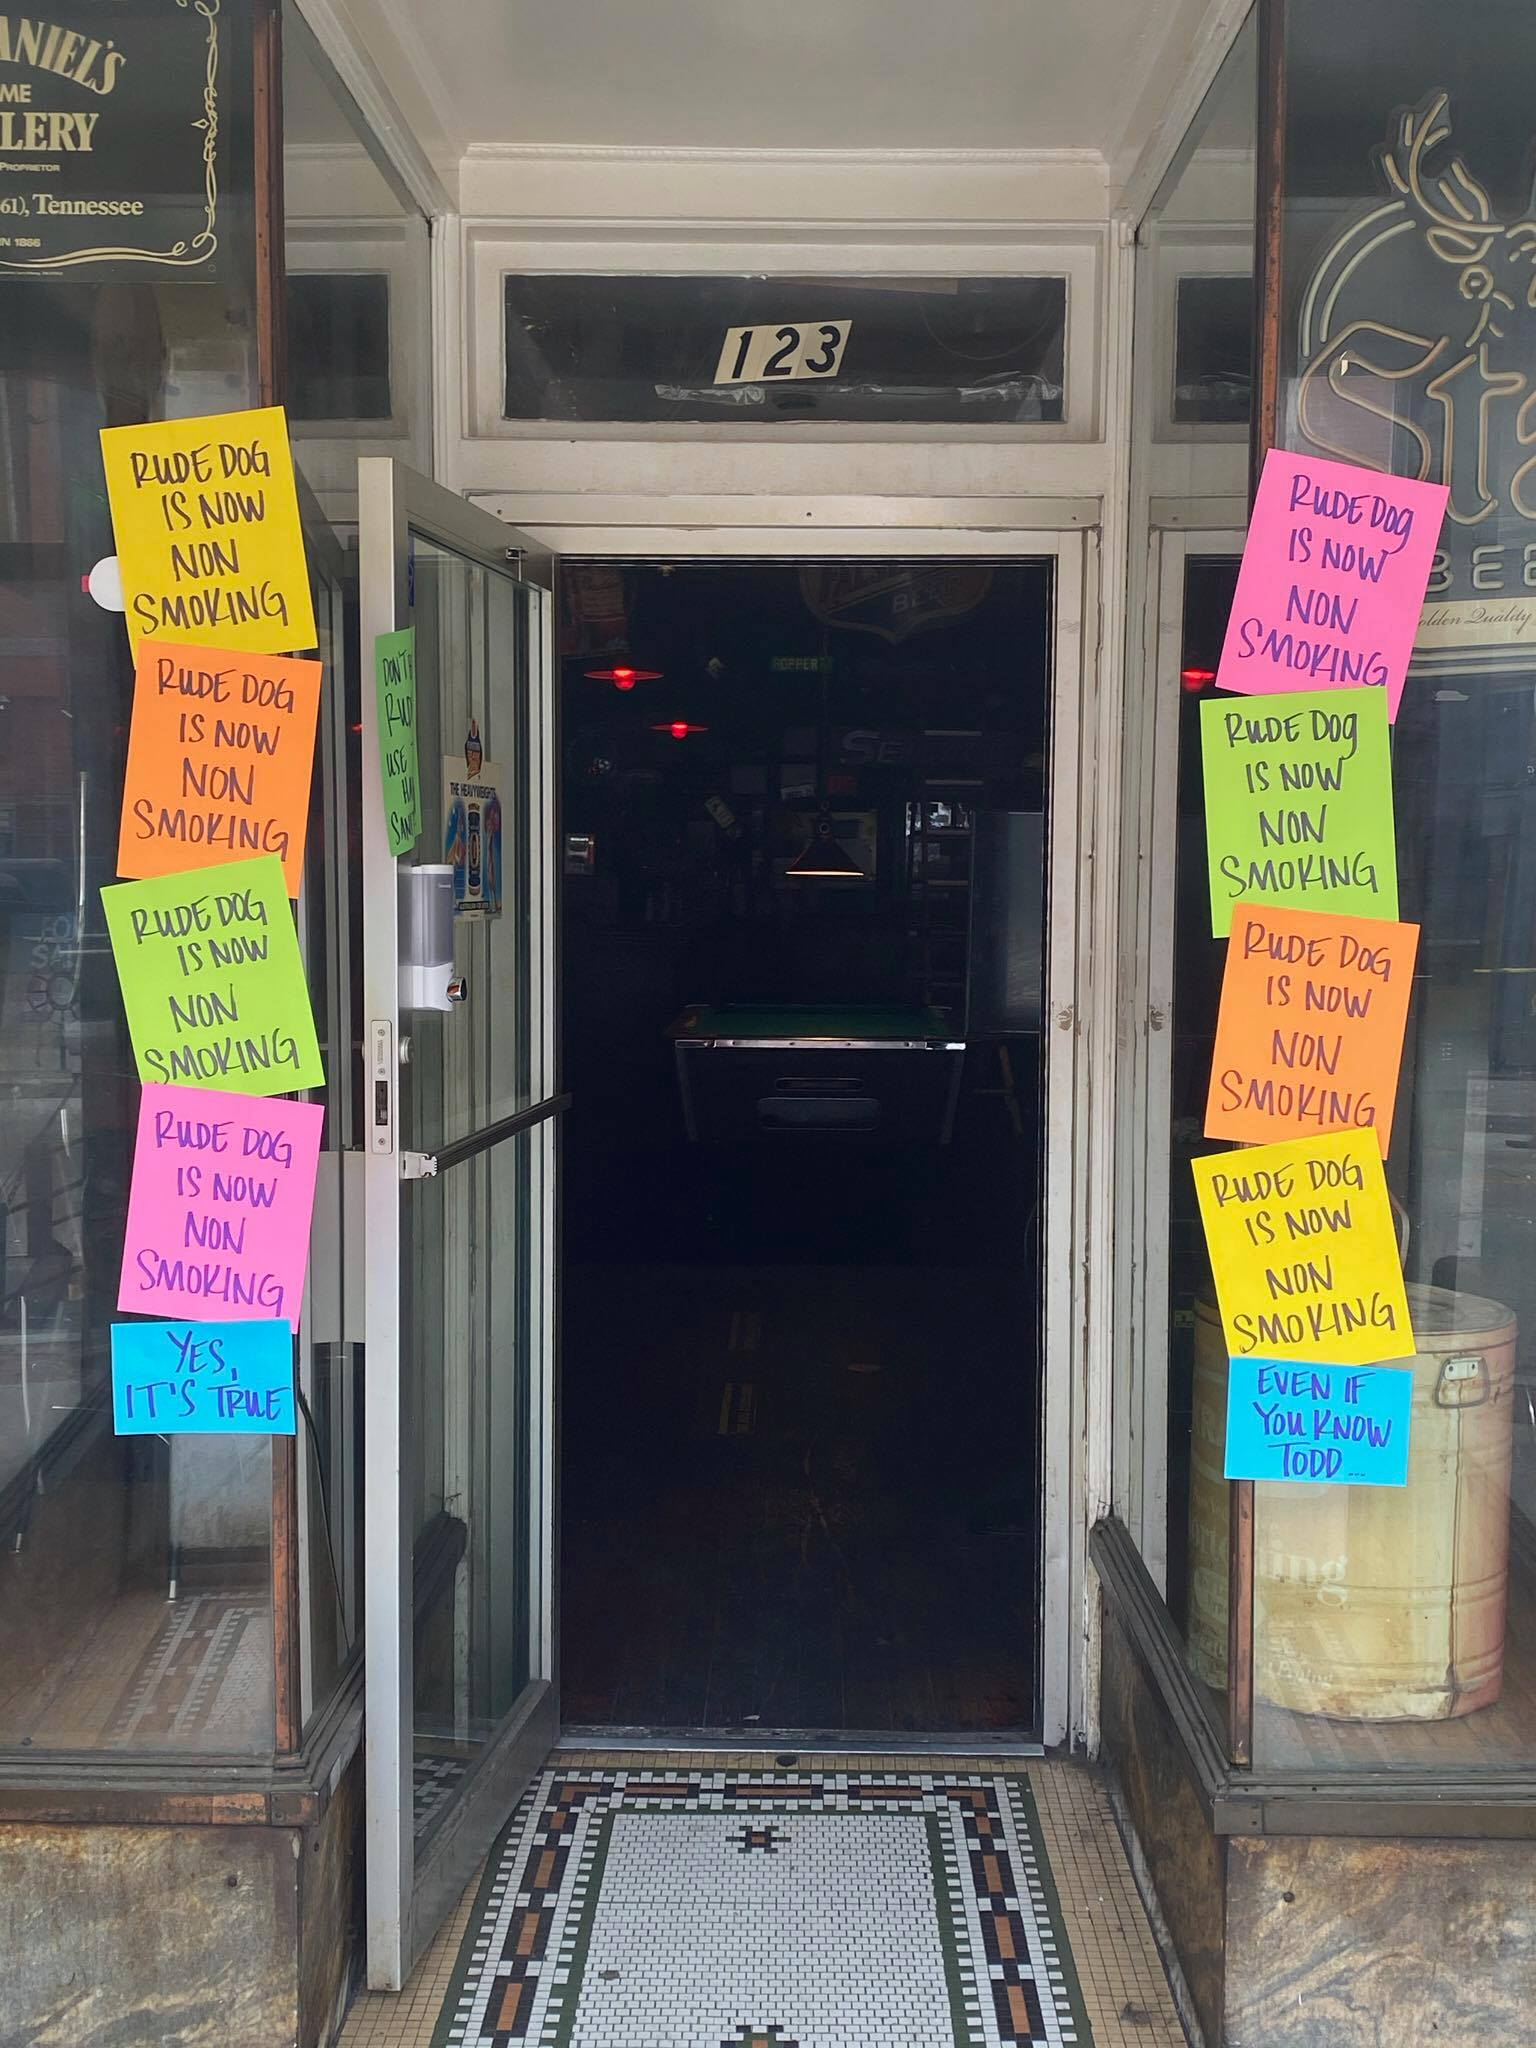 ANIEL'S
ME
LERY
PROPRIETOR
61), Tennessee
IN 1866
123
RUDE DOG
IS NOW
NON
SMOKING
RUDE DOG
IS NOW
NON
SMOKING
RUDE DOG
IS NOW
NON
SMOKING
RUDE DOG
IS NOW
NON
SMOKING
YES,
IT'S TRUE
DON'T
RUD
USE
HA
SAN
THE HEAVYWEIGHTS
BEE
RUDE DOG
IS NOW
NON
SMOKING
RUDE DOG
IS NOW
NON
SMOKING
RUDE DOG
IS NOW
NON
SMOKING
RUDE DOG
IS NOW
NON
SMOKING
EVEN IF
YOU KNOW
TODD...
St
BEE
olden Quality
ing